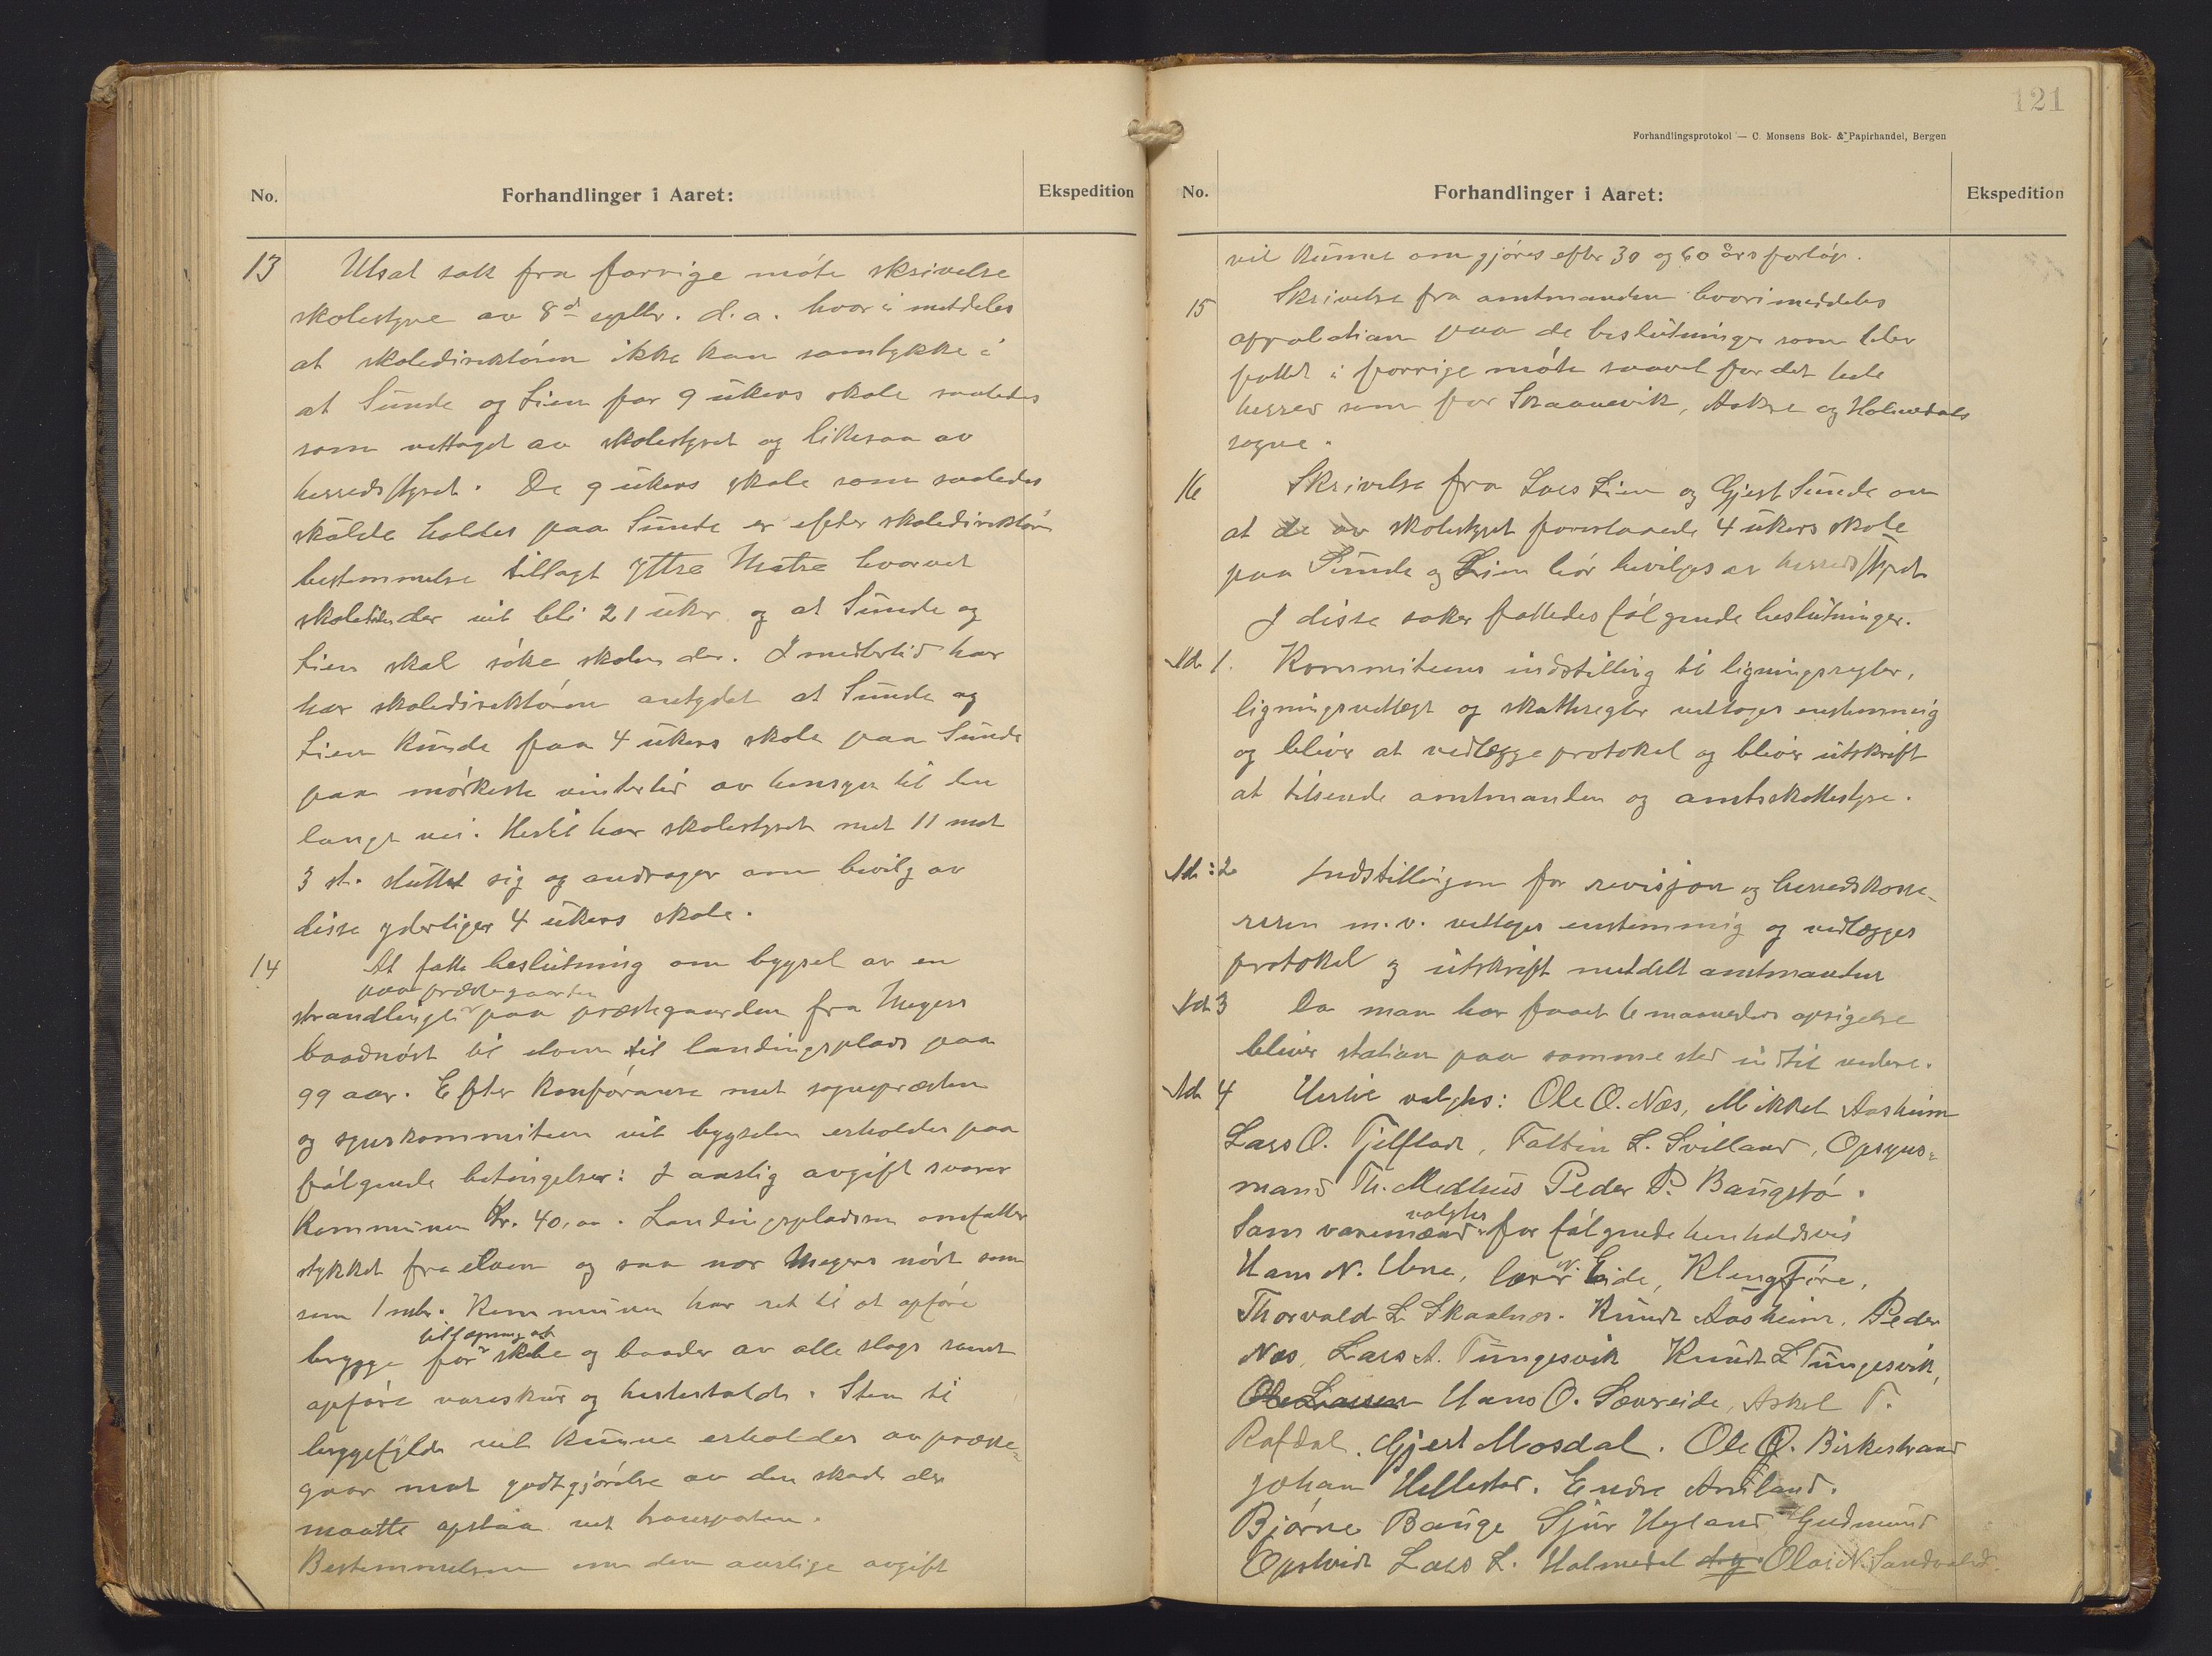 No.
Forhandlinger i Aaret:
Ekspedition
13 Utsat sak fra forrige møte skrivelse
skolestyre av 8de septbr. d.a. hvori meddeles
at skoledirektøren ikke kan samtykke i
at Sunde og Lien faar 9 ukers skole saaledes
som vettaget av skolestyret og likesaa av
herredsstyret. De 9 ukers skole som saaledes
skulde holdes paa Sunde er efter skoledirektør
bestemmelse tillagt Yttre Matre hvorved
skoletiden der vil bli 21 uker og at Sunde og
Lien skal søke skolen der. Imidlertid har
har skoledirektøren antydet at Sunde og
Lien kunde faa 4 ukers skole paa Sunde
paa mørkeste vintertid av hensyn til den
lange vei. Hertil har skolestyret met 11 mot
3 st. sluttet sig og andrager om bevilg av
disse yderligere 4 ukers skole.
14 At fatte beslutning om bygsel av en
paa præstegaarden
strandlinje paa præstegaarden fra Meyers
baadnøst til elven til landingsplads paa
99 aar. Efter konferanse met sognepræsten
og synskommiteen vil bygselen erholdes paa
følgende betingelser: I aarlig avgift svarer
Kommunen Kr. 40,00. Landingspladsen omfatter
stykket fra elven og saa nær Meyers nøst som
som 1 mtr. Kommunen har ret til at opføre
brygge for skibe og baader av alle slags samt
opføre vareskur og hestestalde. Sten til
bryggefylde vil kunne erholdes av præste-
gaar mot godtgjørelse av den skade der
maatte opstaa vet transporten.
Bestemmelsen om den aarlige avgift
121
Forhandlingsprotokol — C. Monsens Bok- & Papirhandel, Bergen
No.
Forhandlinger i Aaret:
Ekspedition
vil kunne omgjøres efter 30 og 60 års forløp.
15 Skrivelse fra amtmanden hvori meddeles
approbation paa de beslutninger som blev
fattet i forrige møte saavel for det hele
herred som for Skaanevik, Aakre og Holmedals
sogne.
16 Skrivelse fra Lars Lien og Gjert Sunde om
at de av skolestyret foreslaaede 4 ukers skole
paa Sunde og Lien bør bevilges av herredsstyret
I disse saker fattedes følgende beslutninger.
Ad. 1. Kommiteens indstilling til ligningsregler,
ligningsvedtægt og skatteregler vettages enstemmig
og bliver at vedlægge protokol og bliver utskrift
at tilsende amtmanden og amtsskattestyre.
Ad: 2 Indstillingen for revisjon og herredskasse-
reren m.v. vettages enstemmig og vedlægges
protokol og utskrift meddelt amtmanden
Ad 3 Da man har faaet 6 maaneders opsigelse
bliver station paa samme sted indtil videre.
Ad 4 Hertil valgtes: Ole O. Næs, Mikkel Aasheim
Lars O. Fjelstad, Faltin L. Svilland, Opsyns-
mand Th. Medhus Peder P. Baugstø.
valgtes
Som varemænd for følgende henholdsvis
Hans N. Ebne, lærer N. Eide, Kleng Føre,
Thorvald L Skaalnes. Knudt Aasheim, Peder
Næs, Lars A. Tungesvik Knudt L Tungesvik,
Ole Larsen Hans O. Sævreide, Askel T.
Rafdal. Gjert Mosdal. Ole O. Birkestrand
Johan Hellestad. Endre
Bjørne Bauge Sjur Høyland Gudmund
Opstvedt Lars L. Holmedal og Olai N. Sandvold.